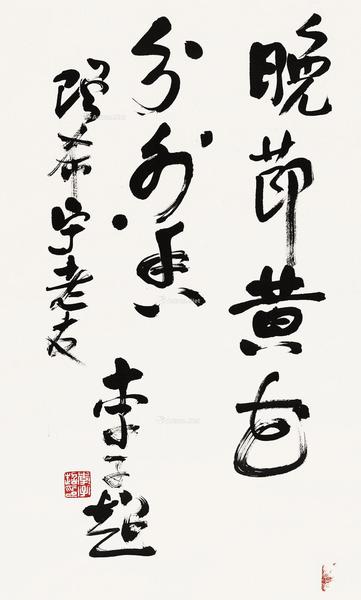 晚节黄花
分外香
赠希宁老友
李子超